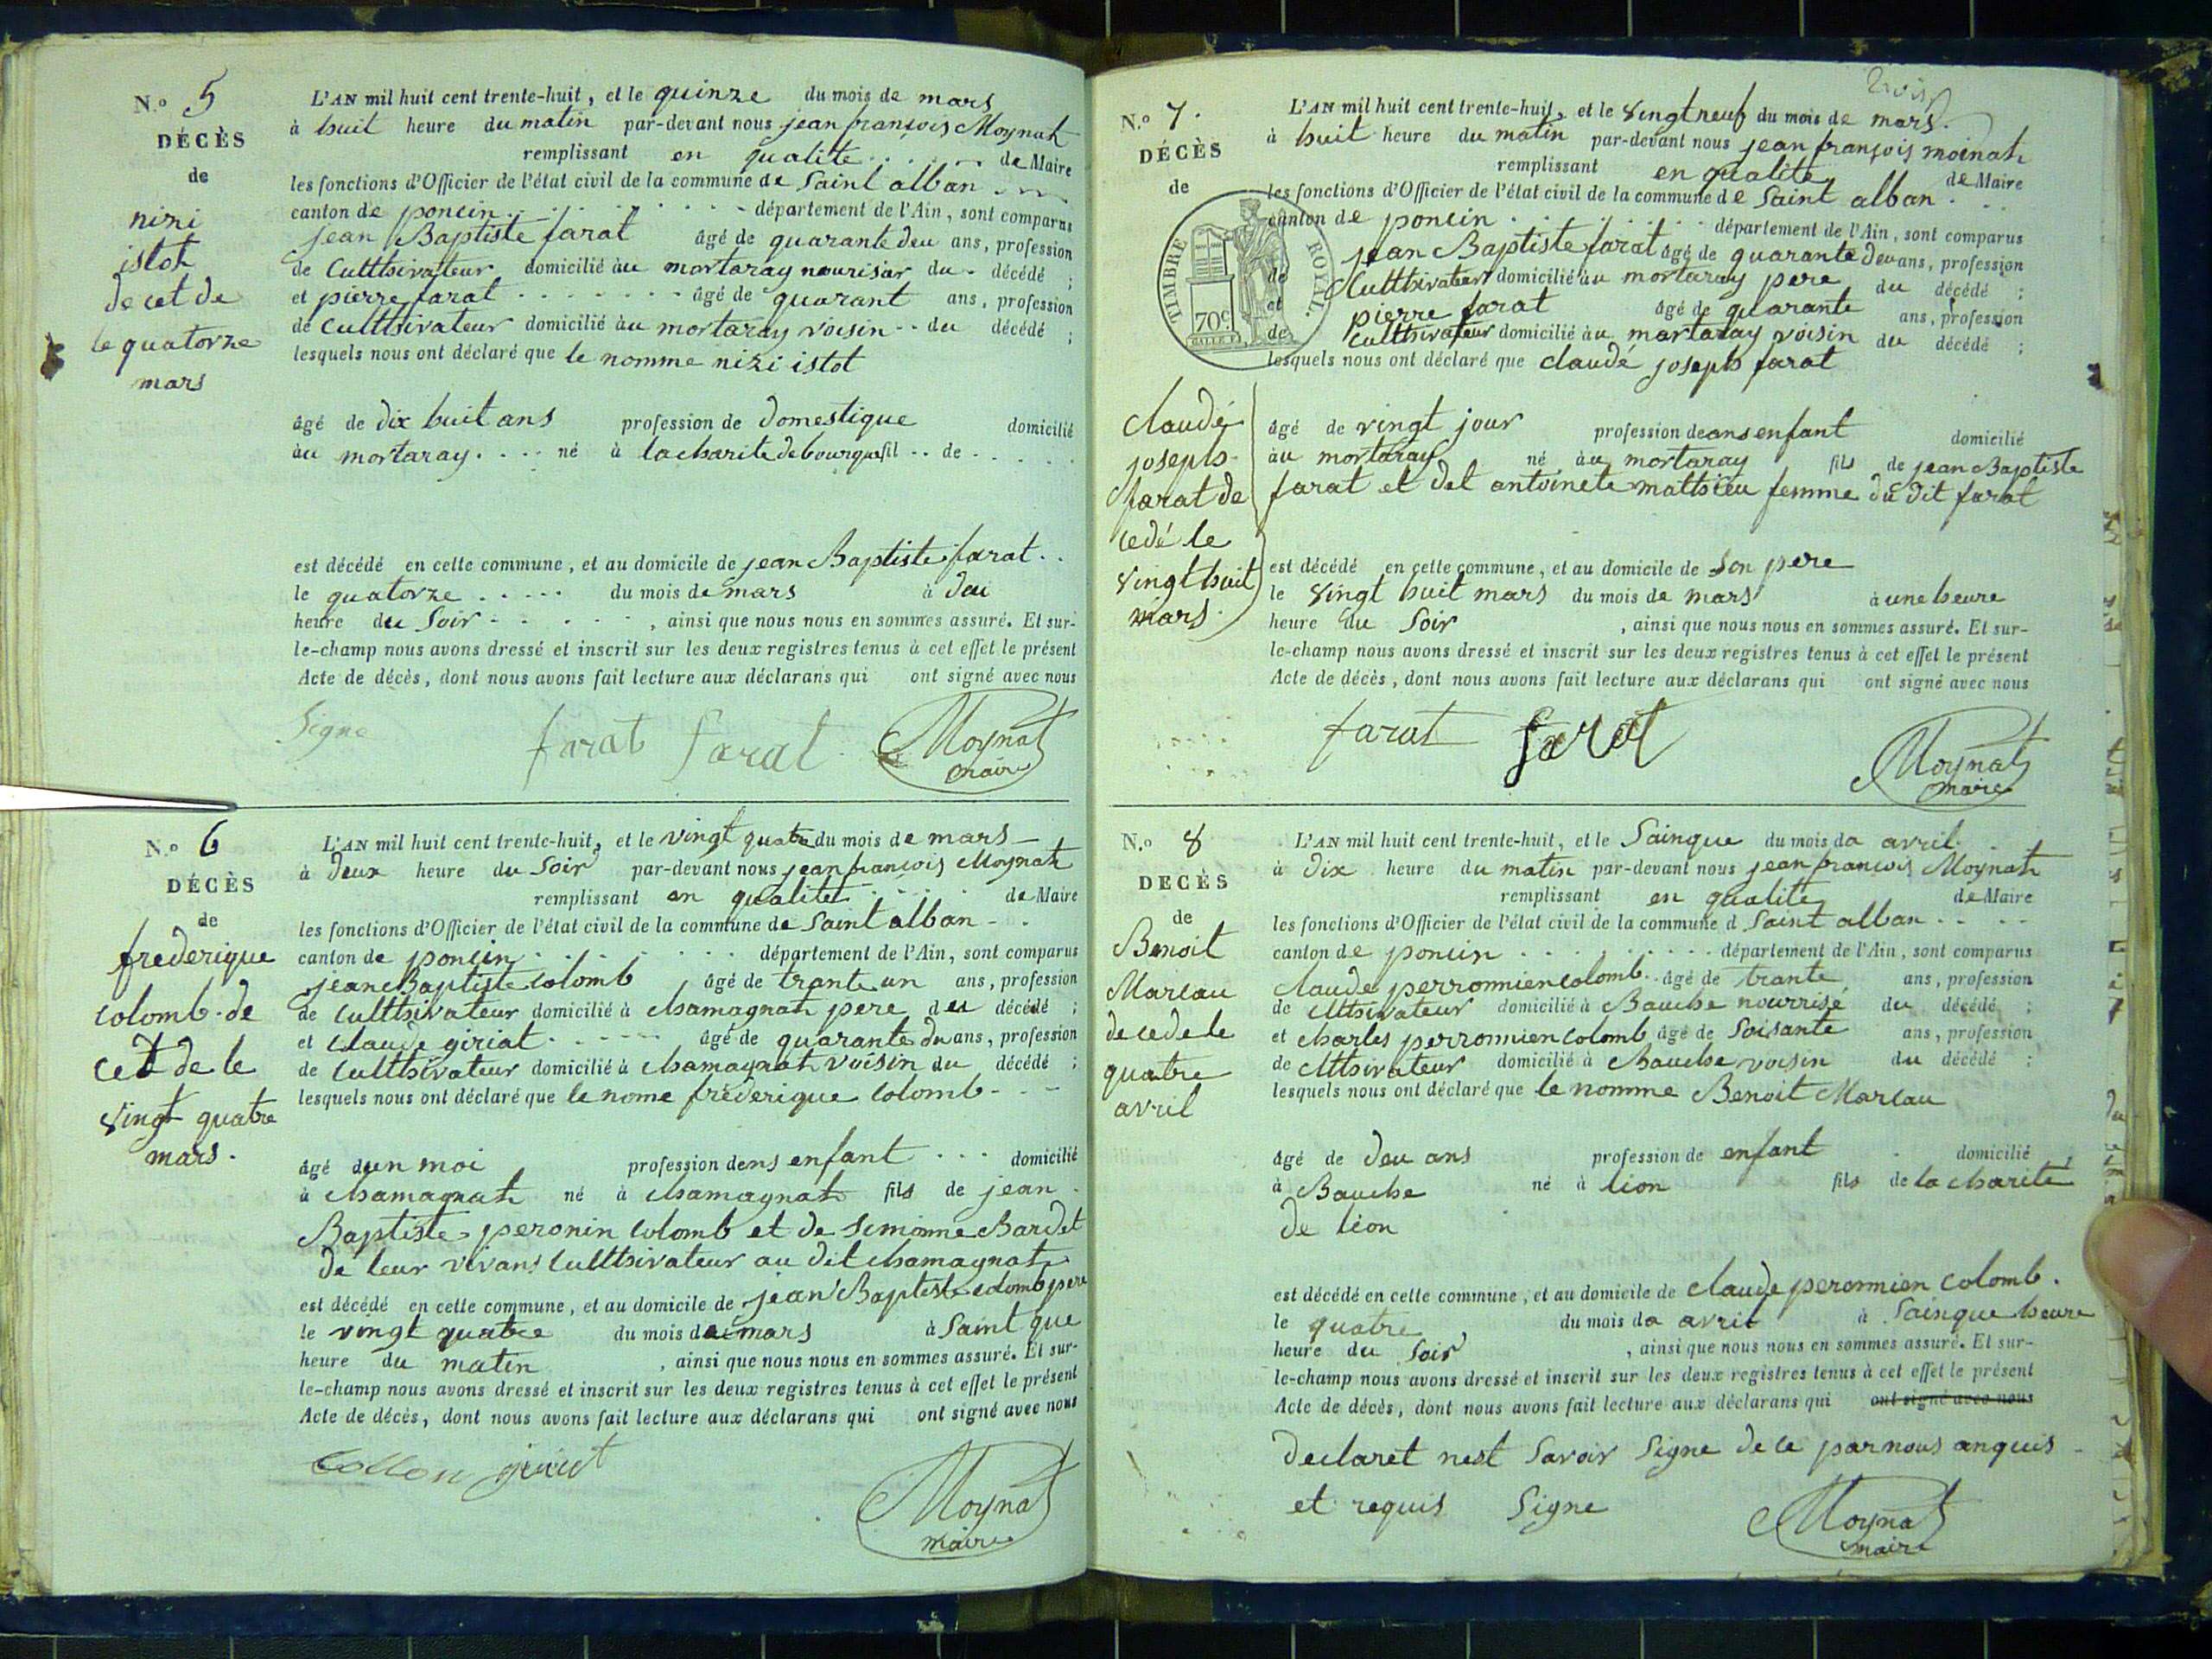 N.o 5
DÉCÈS
de
nizi
istot
de cet de
le quatorze
mars
L'AN mil huit cent trente-huit, et le quinze du mois de mars
à huit heure du matin par-devant nous jean françois Moynat
remplissant en qualite de Maire
les fonctions d'Officier de l'état civil de la commune de Saint alban
canton de poncin département de l'Ain, sont comparus
jean Baptiste farat âgé de quarante deu ans, profession
de Culthivateur domicilié àu mortaray nourisar du décédé ;
et pierre farat âgé de quarant ans, profession
de Culthivateur domicilié àu mortaray voisin du décédé ;
lesquels nous ont déclaré que le nomme nizi istot
âgé de dix huit ans profession de domestique domicilié
àu mortaray né à la charite de bourque fil de
est décédé en cette commune, et au domicile de jean Baptiste farat
le quatorze du mois de mars à deu
heure du Soir, ainsi que nous nous en sommes assuré. Et sur-
le-champ nous avons dressé et inscrit sur les deux registres tenus à cet effet le présent
Acte de décès, dont nous avons fait lecture aux déclarans qui ont signé avec nous
Signe farat farat Moynat
maire
N.o 6
DÉCÈS
de
frederique
colomb de
cet de le
vingt quatre
mars.
L'AN mil huit cent trente-huit, et le vingt quatre du mois de mars
à deux heure du Soir par-devant nous jean francois Moynat
remplissant en qualitet de Maire
les fonctions d'Officier de l'état civil de la commune de Saint alban
canton de poncin département de l'Ain, sont comparus
jean Baptiste colomb âgé de trante un ans, profession
de Culthivateur domicilié à chamagnat pere deu décédé ;
et Claude giriat âgé de quarante du ans, profession
de Culthivateur domicilié à chamagnat voisin du décédé ;
lesquels nous ont déclaré que le nome fréderique Colomb
âgé dun moi profession dens enfant domicilié
à chamagnat né à chamagnat fils de jean
Baptiste peronin Colomb et de Simonne Bardet
de leur vivans Culthivateur au dit chamagnat
est décédé en cette commune, et au domicile de jean Baptiste colomb pere
le vingt quatre du mois de mars à Saint que
heure du matin, ainsi que nous nous en sommes assuré. Et sur-
le-champ nous avons dressé et inscrit sur les deux registres tenus à cet effet le présent
Acte de décès, dont nous avons fait lecture aux déclarans qui ont signé avec nous
Collon giriat
Moynat
maire
N.o 7.
DÉCÈS
de
TIMBRE ROYAL.
70c
claudé
joseph
farat de
cedé le
vingt huit
mars.
L'AN mil huit cent trente-huit, et le vingt neuf du mois de mars.
à huit heure du matin par-devant nous jean françois moinat
remplissant en qualite de Maire
les fonctions d'Officier de l'état civil de la commune de Saint alban
canton de poncin département de l'Ain, sont comparus
jean Baptiste farat âgé de quarante deu ans, profession
de Culthivateur domicilié àu mortaray pere du décédé ;
et pierre farat âgé de quarante ans, profession
de Culthivateur domicilié àu martaray voisin du décédé ;
lesquels nous ont déclaré que claudé joseph farat
âgé de vingt jour profession de ans enfant domicilié
àu mortaray né àu mortaray fils de jean Baptiste
farat et det antoinete mathieu femme du dit farat
est décédé en cette commune, et au domicile de Son pere
le vingt huit mars du mois de mars à une heure
heure du Soir, ainsi que nous nous en sommes assuré. Et sur-
le-champ nous avons dressé et inscrit sur les deux registres tenus à cet effet le présent
Acte de décès, dont nous avons fait lecture aux déclarans qui ont signé avec nous
farat farat
Moynat
maire
N.o 8
DECÈS
de
Benoit
Marcau
decede le
quatre
avril
L'AN mil huit cent trente-huit, et le Sainque du mois da avril
à dix heure du matin par-devant nous jean francois Moynat
remplissant en qualite de Maire
les fonctions d'Officier de l'état civil de la commune d Saint alban
canton de poncin département de l'Ain, sont comparus
claude perronnien colomb âgé de trante ans, profession
de Clthivateur domicilié à Bauche nourrise du décédé ;
et charles perronnien colomb âgé de Soisante ans, profession
de Clthivateur domicilié à Bauche voisin du décédé ;
lesquels nous ont déclaré que le nomme Benoit Marcau
âgé de deu ans profession de enfant domicilié
à Bauche né à lion fils de la charité
de lion
est décédé en cette commune, et au domicile de claude peronnien colomb.
le quatre du mois da avril à Sainque heure
heure du Soir, ainsi que nous nous en sommes assuré. Et sur-
le-champ nous avons dressé et inscrit sur les deux registres tenus à cet effet le présent
Acte de décès, dont nous avons fait lecture aux déclarans qui ont signé avec nous
declaret nest Savoir Signe de ce par nous anquis
et requis Signe
Moynat
maire